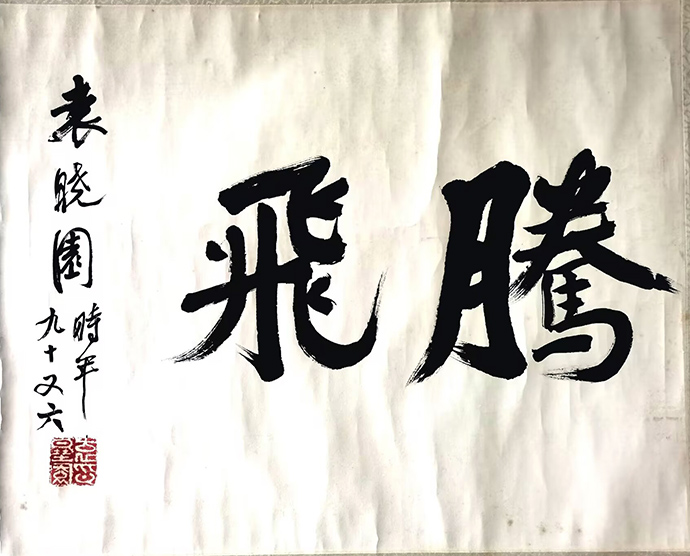 騰飛
袁晓園
時年
九十又六